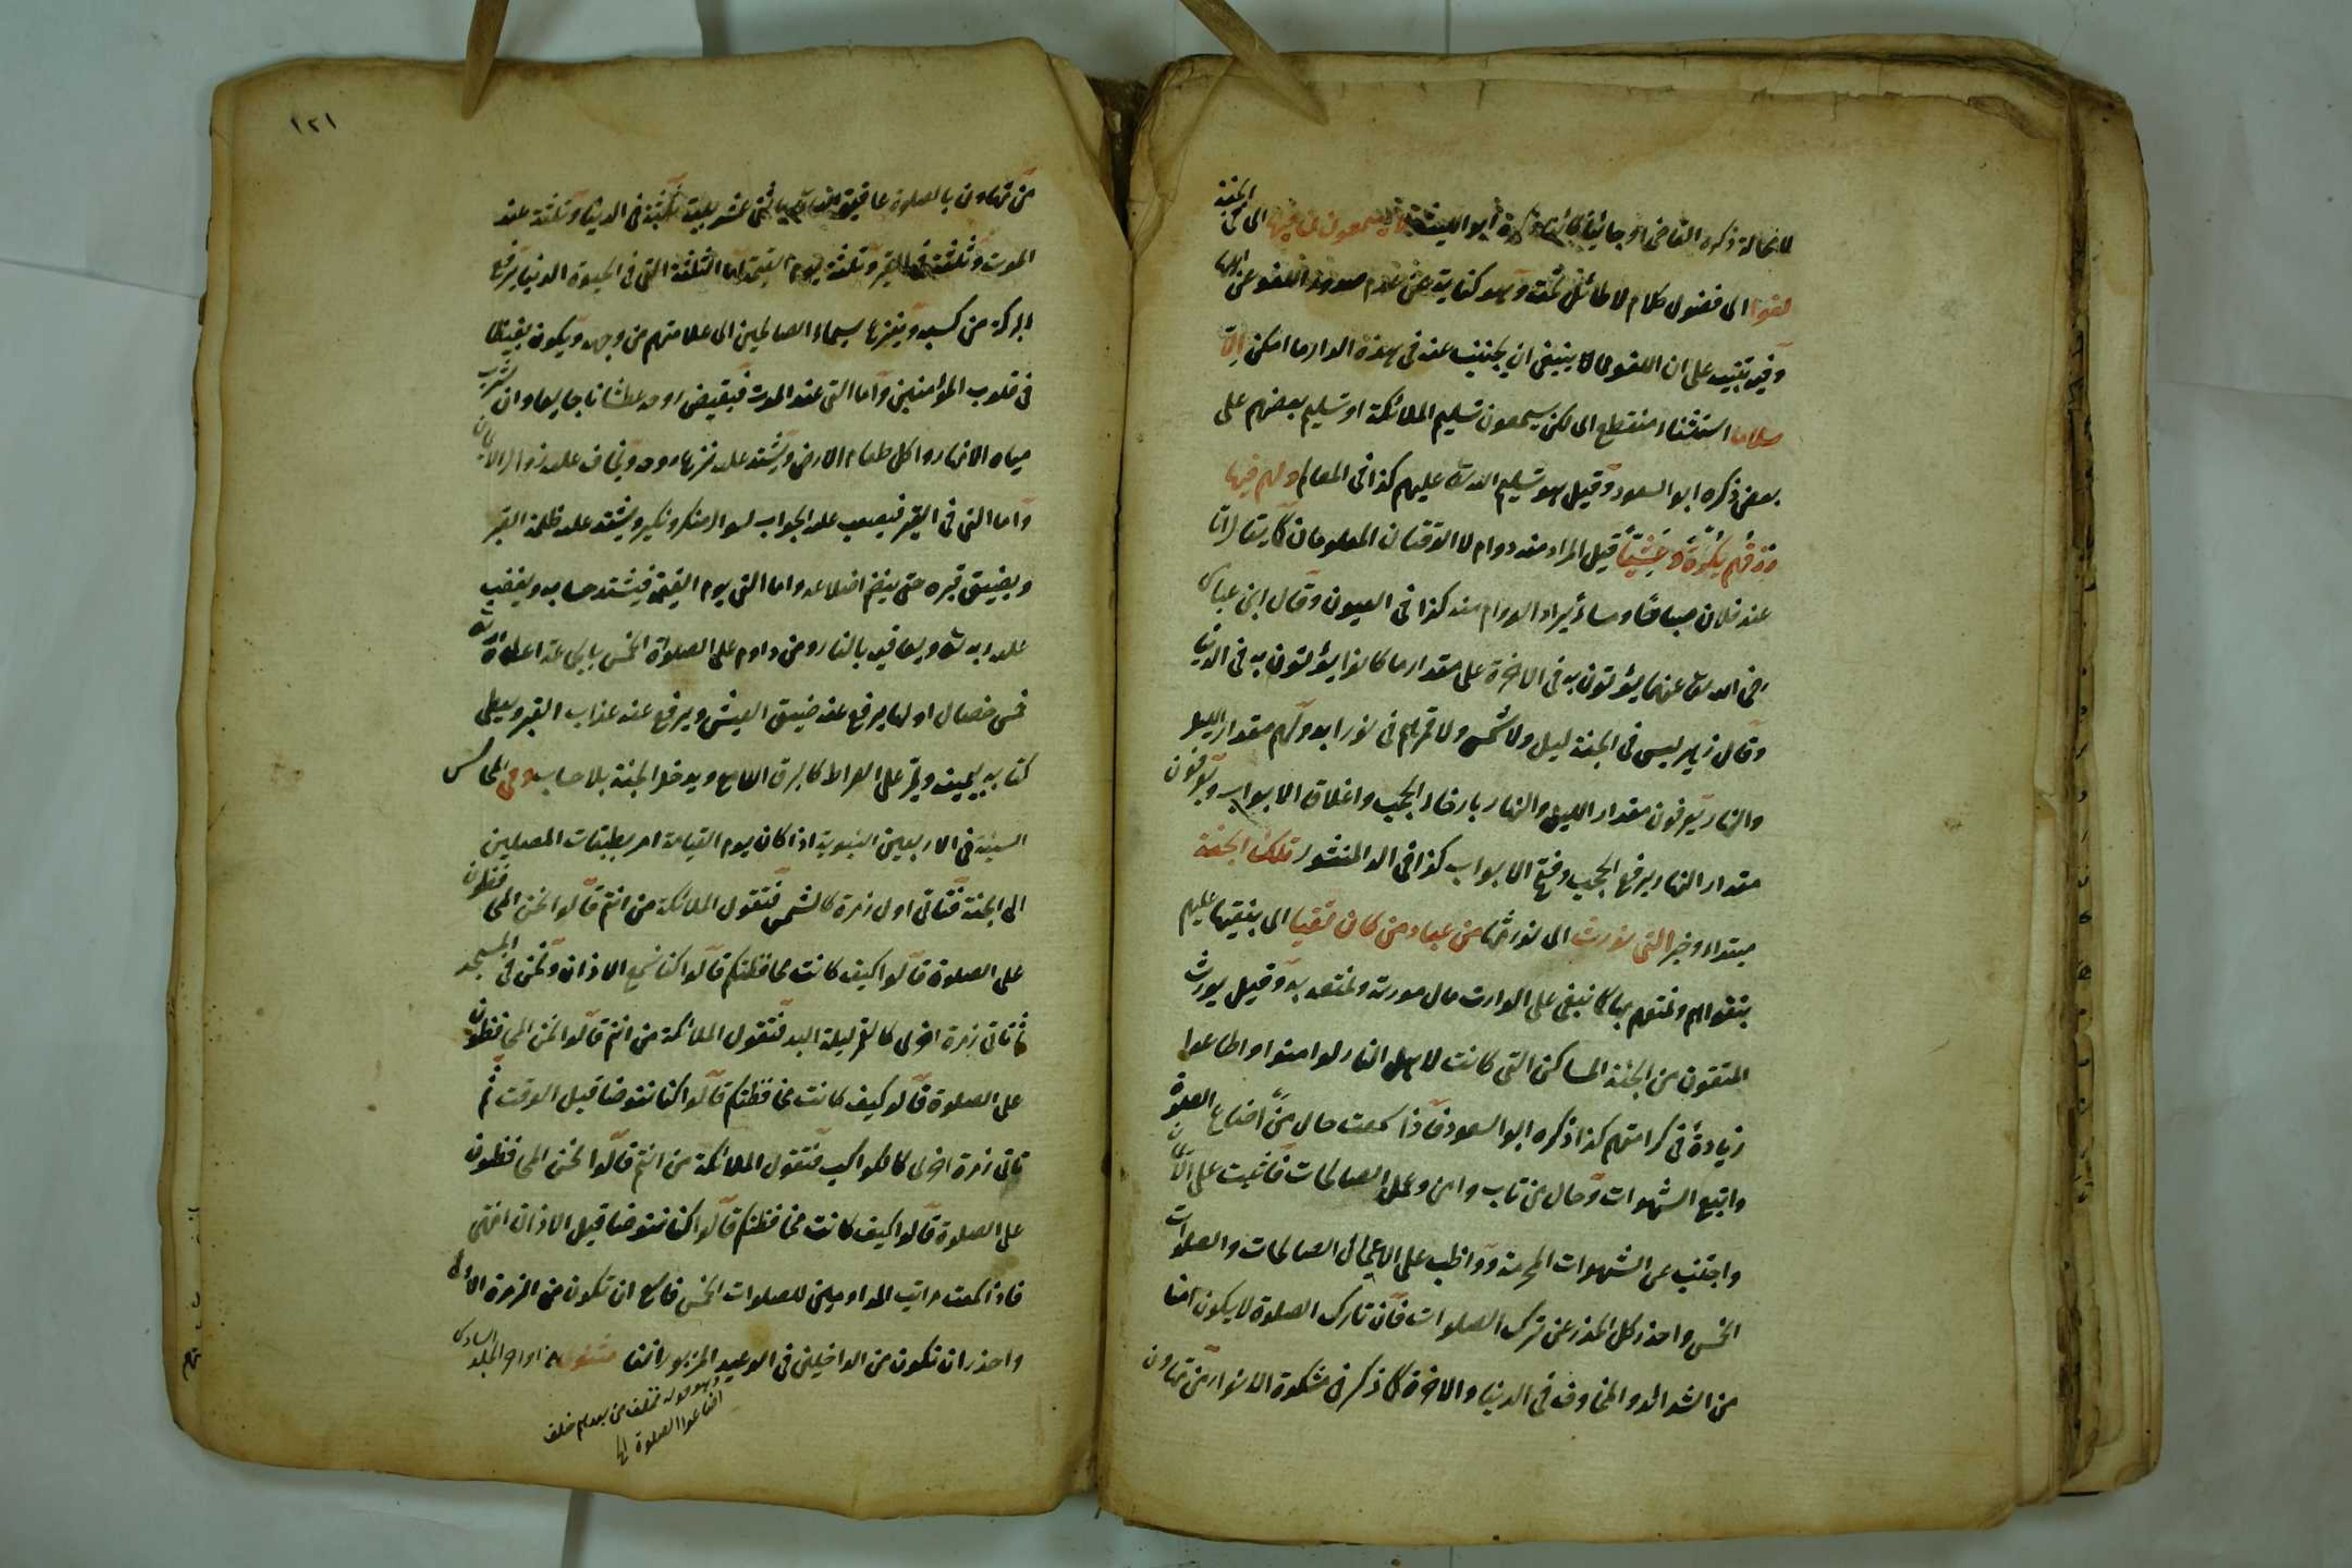 لا محالة ذكره القاضى او جائيا كائنا ذكره ابو الليث لا يسمعون فيها اى فى الجنة
لغوا اى فضول كلام لا طائل تحته وهو كناية عن عدم صدور اللغو عن اهلها
وفيه تنبيه على ان اللغو مما ينبغى ان يجتنب عنه فى هذه الدار ما امكن الا
سلاما استثناء منقطع اى لكن يسمعون تسليم الملائكة او تسليم بعضهم على
بعض ذكره ابو السعود وقيل هو تسليم الله تعالى عليهم كذا فى المعالم ولهم فيها
رزقهم بكرة وعشيا قيل المراد منه دوام لا الوقتان المعلومان كما يقال انا
عند فلان صباحا ومساء يراد الدوام منه كذا فى العيون وقال ابن عباس
رضى الله تعالى عنهما يؤتون به فى الاخرة على مقدار ما كانوا يؤتون به فى الدنيا
وقال زهير ليس فى الجنة ليل ولا شمس ولا قمر هم فى نور ابد ولهم مقدار الليل
والنهار يعرفون مقدار الليل والنهار بارخاء الحجب واغلاق الابواب ويعرفون
مقدار النهار برفع الحجب وفتح الابواب كذا فى الدر المنثور تلك الجنة
مبتداء وخبر التى نورث اى نورثها من عبادنا من كان تقيا اى نبقيها عليهم
بتقواهم ونمتعهم بها كما نبقى على الوارث مال مورثه ونمتعه به وقيل يورث
المتقون من الجنة المساكن التى كانت لاهل النار لو امنوا واطاعوا
زيادة فى كرامتهم كذا ذكره ابو السعود فاذا سمعت حال من اضاع الصلوة
واتبع الشهوات وحال من تاب وامن وعمل الصالحات فاثبت على الايمان
واجتنب عن الشهوات المحرمة وواظب على الاعمال الصالحات والصلوات
الخمس واحذر كل الحذر عن ترك الصلوات فان تارك الصلوة لا يكون امنا
من الشدائد والمخاوف فى الدنيا والاخرة كما ذكر فى مشكوة الانوار من تهاون
١٢١
من تهاون بالصلوة عاقبه الله تعالى باثنى عشر بلية ثلثة فى الدنيا وثلثة عند
الموت وثلثة فى القبر وثلثة يوم القيمة اما الثلثة التى فى الحيوة الدنيا يرفع
البركة من كسبه وينزع سيماء الصالحين اى علامتهم من وجهه ويكون بغيضا
فى قلوب المؤمنين واما التى عند الموت فيقبض روحه عطشانا جايعا وان شرب
مياه الانهار واكل طعام الارض ويشتد عليه نزع روحه ويخاف عليه زوال الايمان
واما التى فى القبر فيصعب عليه الجواب لسؤال منكر ونكير ويشتد عليه ظلمة القبر
ويضيق قبره حتى ينضم اضلاعه واما التى يوم القيمة فيشتد حسابه ويغضب
عليه ربه تعالى ويعاقبه بالنار ومن داوم على الصلواة الخمس بالجماعة اعطاه الله تعالى
خمس خصال اولها يرفع عنه ضيق العيش ويرفع عنه عذاب القبر ويعطى
كتابه بيمينه ويمر على الصراط كالبرق اللامع ويدخل الجنة بلا حساب وفى المجالس
السنية فى الاربعين النبوية اذا كان يوم القيامة امر بطبقات المصلين
الى الجنة فتاتى اول زمرة كالشمس فتقول الملائكة من انتم قالوا نحن المحافظون
على الصلوة قالوا كيف كانت محافظتكم قالوا كنا نسمع الاذان ونحن فى المسجد
ثم تاتى زمرة اخرى كالقمر ليلة البدر فتقول الملائكة من انتم قالوا نحن المحافظون
على الصلوة قالوا كيف كانت محافظتكم قالوا كنا نتوضا قبل الوقت ثم
تاتى زمرة اخرى كالكواكب فتقول الملائكة من انتم قالوا نحن المحافظون
على الصلوة قالوا كيف كانت محافظتكم قالوا كنا نتوضا قبل الاذان انتهى
فاذا سمعت مراتب المداومين للصلوات الخمس فاسع ان تكون من الزمرة الاولى
واحذر ان تكون من الداخلين فى الوعيد المزبور انفا اواخر المجلد السادس
وهو قوله فخلف من بعدهم خلف
اضاعوا الصلوة